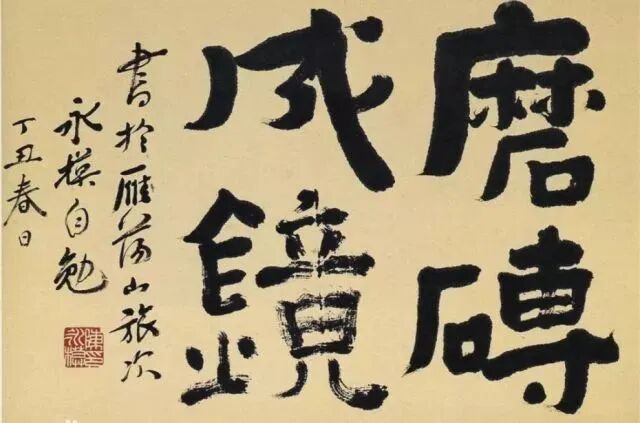 磨磚
成鏡
書於雁蕩山旅次
永模自勉
丁丑春日